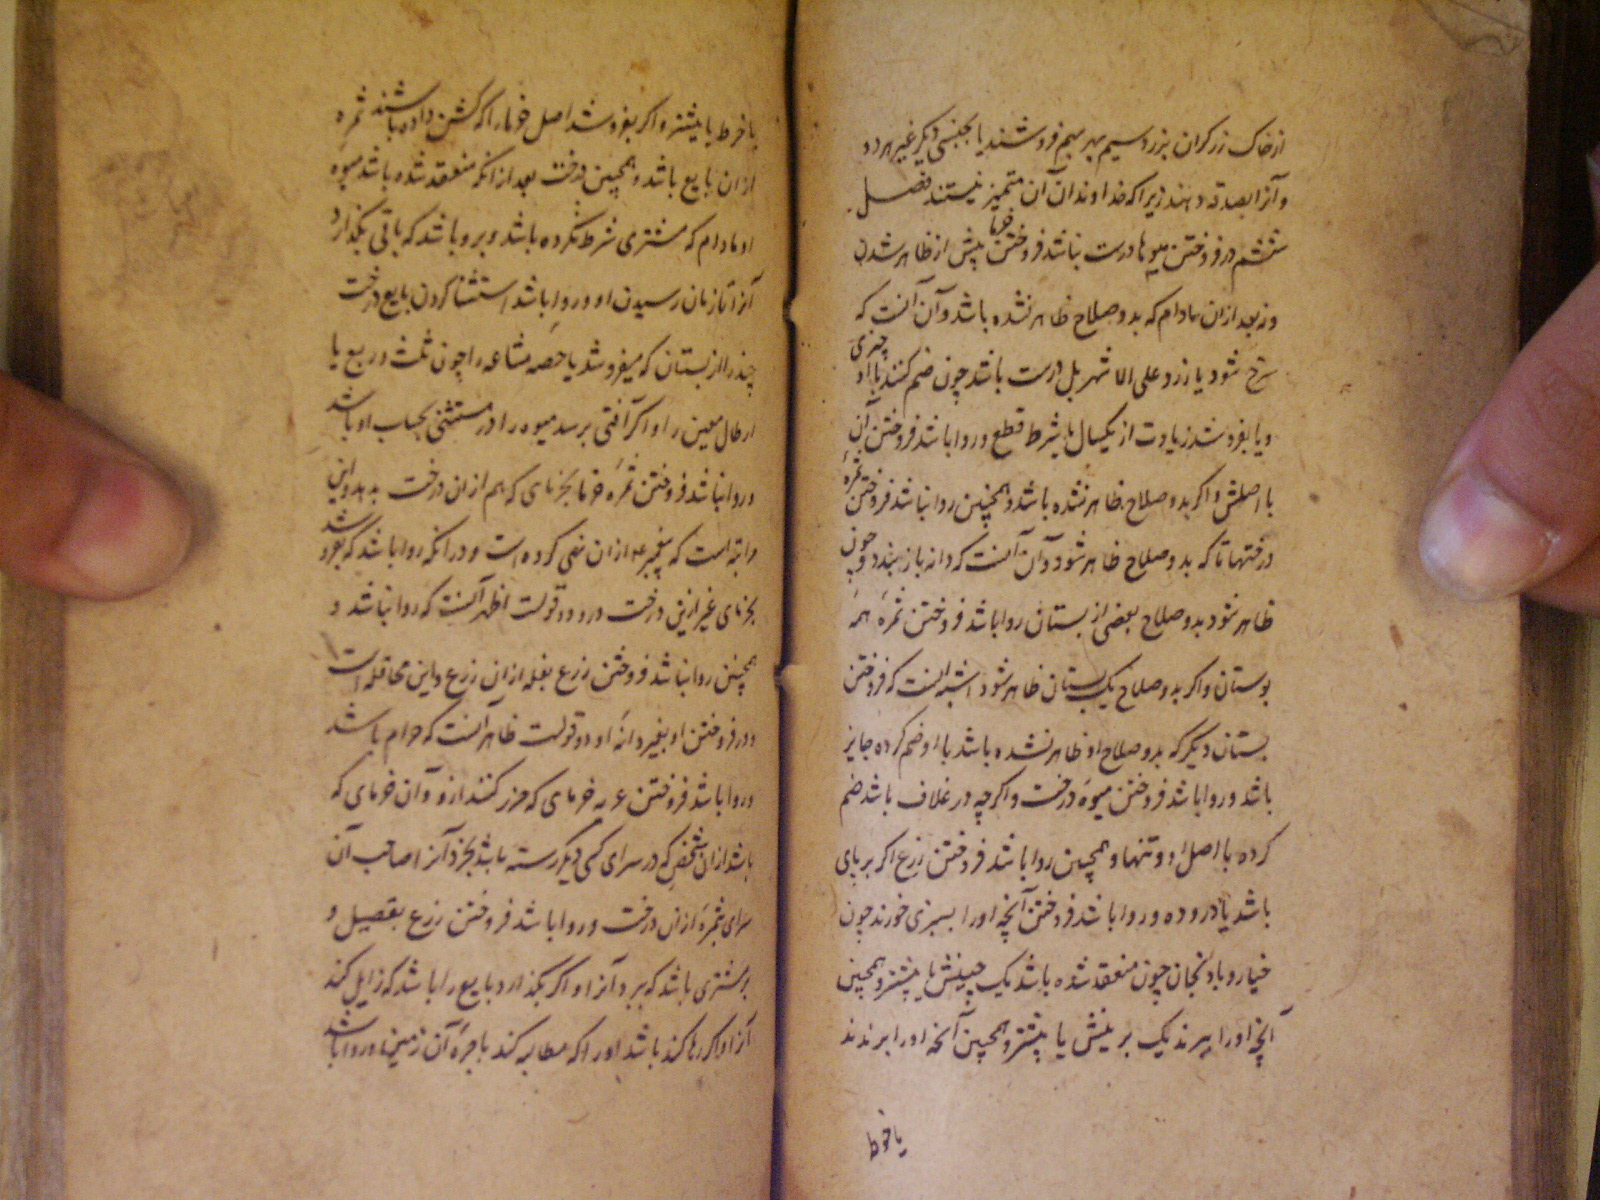 از خاک زرگران بزر و سیم بهر سیم فروشند یا بجنسی دیگر غیر هر دو
و آنرا بصدقه دهند زیرا که خداوندان آن متمیز نیستند فصل
ششم در فروختن میوها درست نباشد فروختن خرما پیش از ظاهر شدن
و نه بعد از آن مادام که بدو صلاح ظاهر نشده باشد و آن آنست که
سرخ شود یا زرد علی الاشهر بل درست باشد چون ضم کنند با او چیزی
و یا بفروشند زیادت از یکسال یا بشرط قطع و روا باشد فروختن آن
با اصلش و اگر بدو صلاح ظاهر نشده باشد و همچنین روا نباشد فروختن ثمرهٔ
درختها تا که بدو صلاح ظاهر شود و آن آنست که دانه باز بندد و چون
ظاهر شود بدو صلاح بعضی از بستان روا باشد فروختن ثمرهٔ همهٔ
بوستان و اگر بدو صلاح یک بستان ظاهر شود اشبه آنست که فروختن
بستان دیگر که بدو صلاح او ظاهر نشده باشد با او ضم کرده جایز
باشد و روا باشد فروختن میوهٔ درخت و اگرچه در غلاف باشد ضم
کرده با اصل او و تنها و همچنین روا باشد فروختن زرع اگر بر پای
باشد یا دروده و روا باشد فروختن آنچه او را بسبزی خورند چون
خیار و بادنجان چون منعقد شده باشد یک چینش یا بیشتر و همچنین
آنچه او را ببرند یک برینش یا بیشتر و همچنین آنچه او را برندند
یا خرط
یا خرط یا بیشتر و اگر بفروشد اصل خرما را که گشن داده باشند ثمره
از آن بایع باشد و همچنین درخت بعد از آنکه منعقد شده باشد میوه
او مادام که مشتری شرط نکرده باشد و برو باشد که باقی بگذارد
آنرا تا زمان رسیدن او و روا باشد استثنا کردن بایع درخت
چند را از بستان که میفروشد یا حصه مشاعه را چون ثلث و ربع یا
ارطال معین را و اگر آفتی برسد میوه را در مستثنی بحساب او باشد
و روا نباشد فروختن ثمرهٔ خرما بخرمای که هم از آن درخت بدهد و این
مزابنه است که پیغمبر ع از آن نهی کرده است و در آنکه روا باشد که بفروشد
بخرمای غیر ازین درخت درو دو قولست اظهر آنست که روا نباشد و
همچنین روا نباشد فروختن زرع بغله از آن زرع و این محاقله است
و در فروختن او بغیر دانهٔ او دو قولست ظاهر آنست که حرام باشد
و روا باشد فروختن عریه خرمای که حزر کنند ازو و آن خرمای که
باشد از آن شخص که در سرای کسی دیگر رسته باشد بخرد آنرا صاحب آن
سرای بثمرهٔ از آن درخت و روا باشد فروختن زرع بقصیل و
بر مشتری باشد که ببرد آنرا و اگر بگذارد بایع را باشد که زایل کند
آنرا و اگر رها کند باشد او را که مطالبه کند باجرهٔ آن زمین و روا باشد